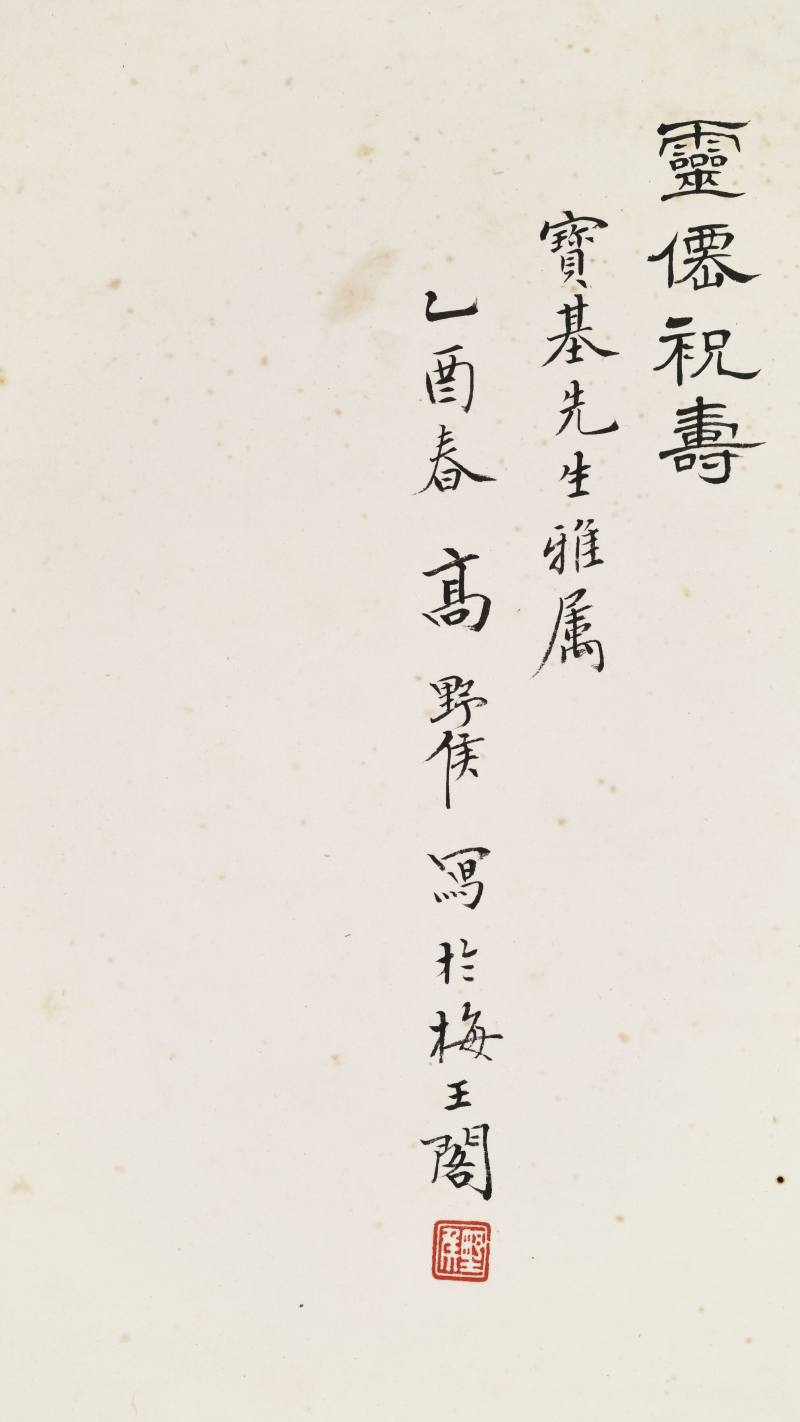 靈僊祝壽
寶基先生雅属
乙酉春高野侯寫於梅王閣
野侯